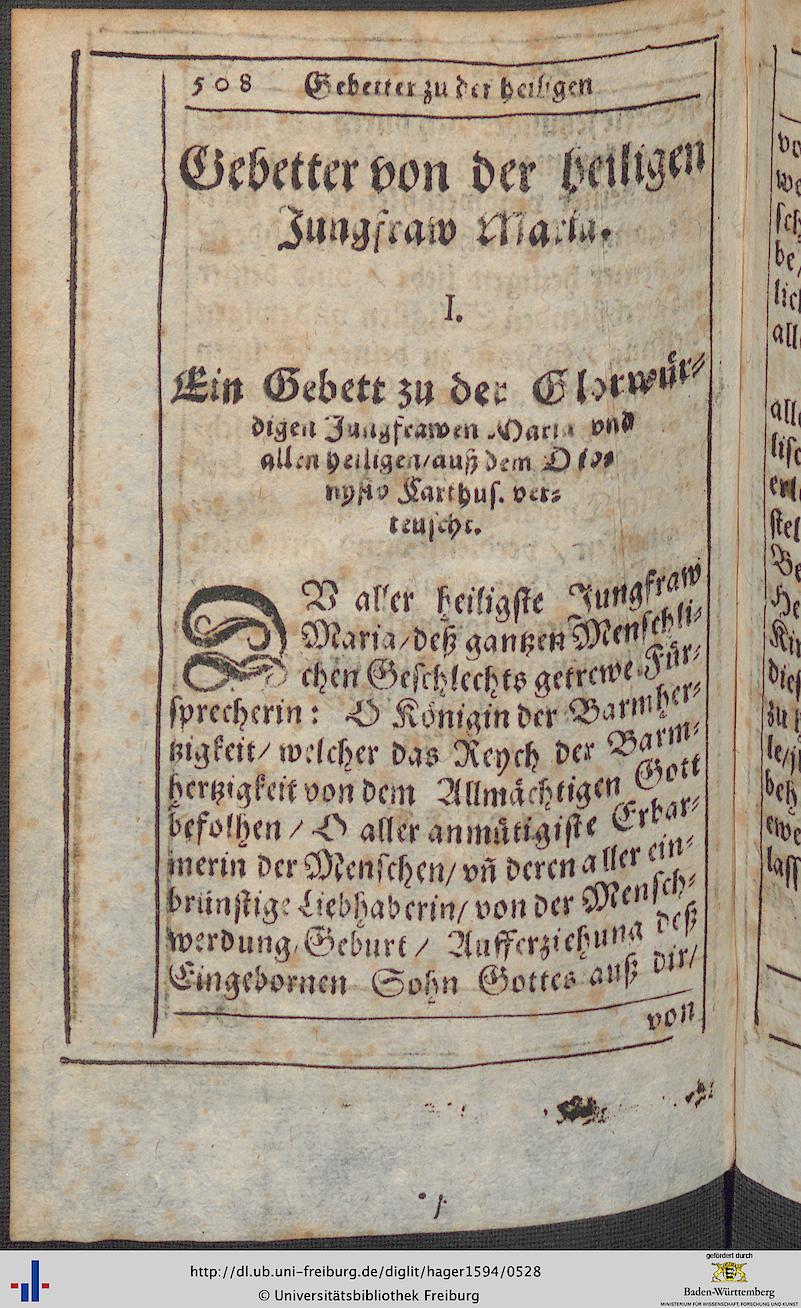 508 Gebetter zu der heiligen
Gebetter von der heiligen
Jungfraw Maria.
I.
Ein Gebett zu der Glorwür⸗
digen Jungfrawen Maria vnd
allen heiligen/auß dem Dio⸗
nysio Carthus. ver⸗
teuscht.
DV aller heiligste Jungfraw
Maria/deß gantzen Menschli⸗
chen Geschlechts getrewe Für⸗
sprecherin: O Königin der Barmher⸗
tzigkeit/ welcher das Reych der Barm⸗
hertzigkeit von dem Allmächtigen Gott
befolhen / O aller anmütigiste Erbar⸗
merin der Menschen/ vñ deren aller ein⸗
brünstige Liebhaberin/ von der Mensch⸗
werdung/Geburt / Aufferziehung deß
Eingebornen Sohn Gottes auß dir/
von
vo
we
sch
be/
lich
all
alle
erl
stel
Be
He
Kin
dies
zu
beh
ewe
lass
http://dl.ub.uni-freiburg.de/diglit/hager1594/0528
© Universitätsbibliothek Freiburg
gefördert durch
Baden-Württemberg
MINISTERIUM FÜR WISSENSCHAFT, FORSCHUNG UND KUNST